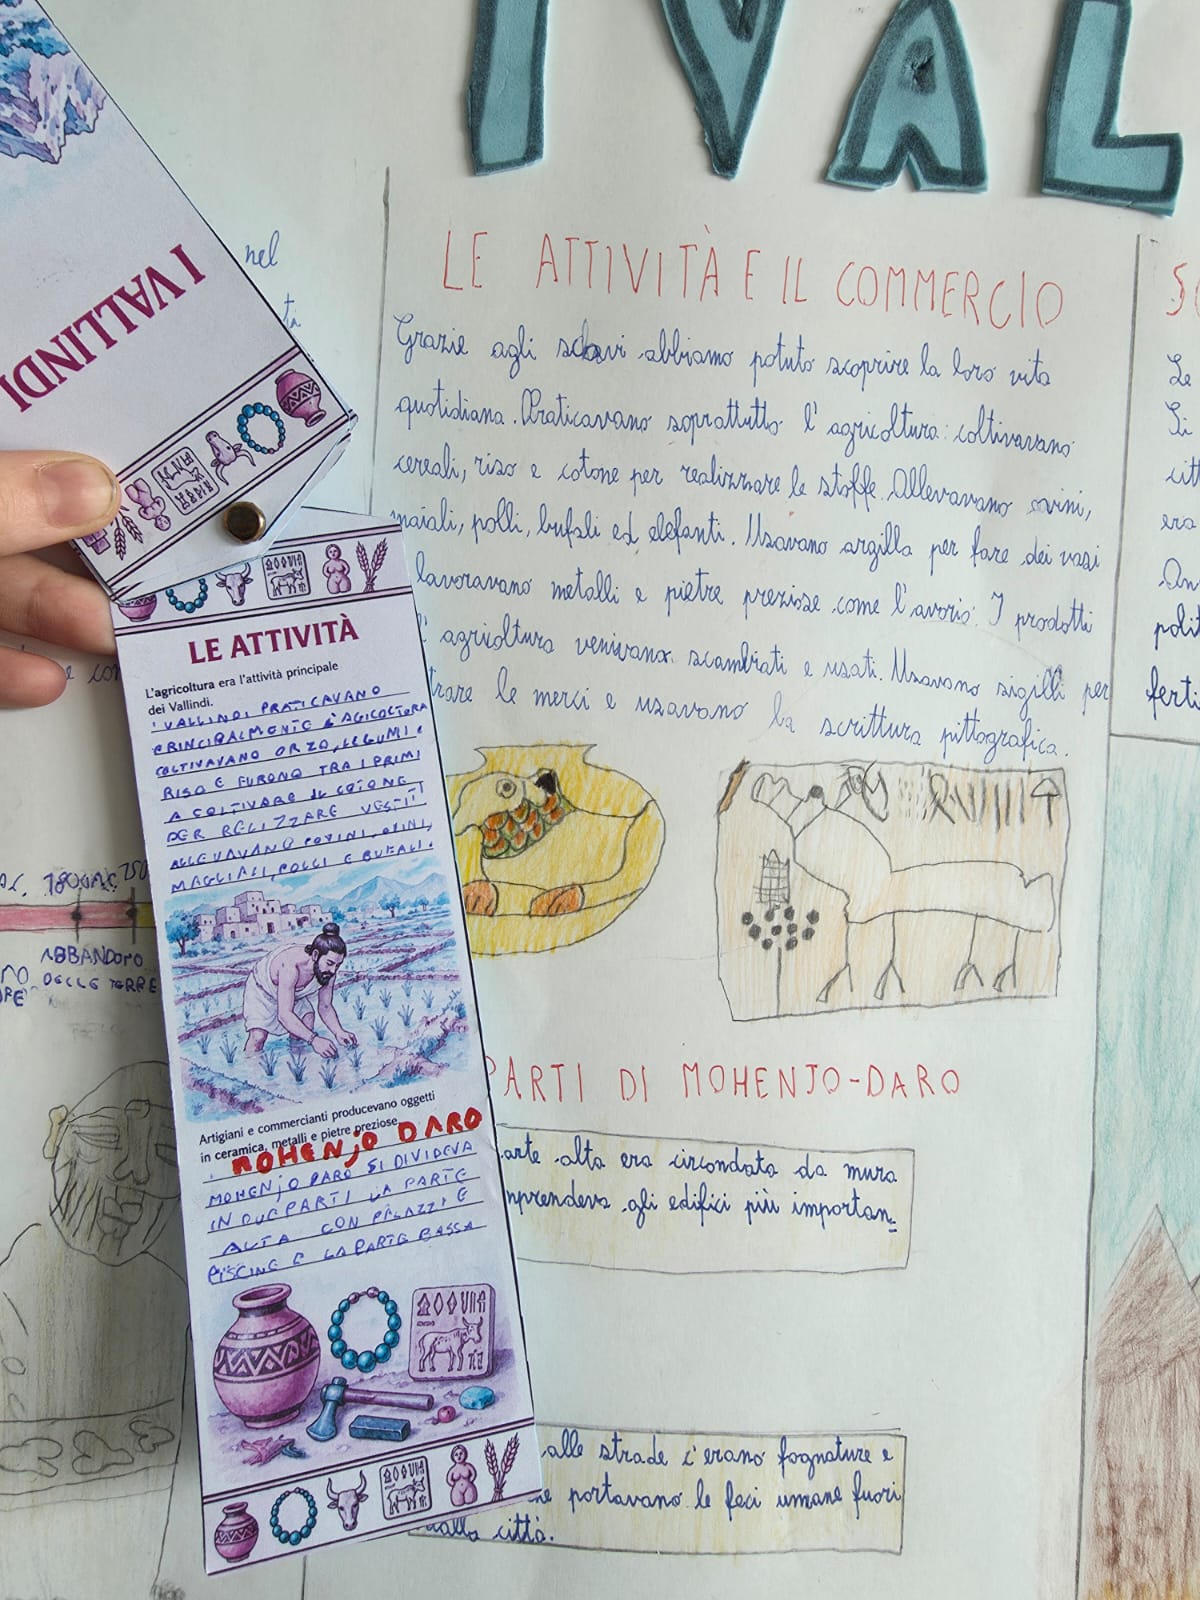 I VAL
nel
I VALLINDI
LE ATTIVITÀ E IL COMMERCIO
Grazie agli scavi abbiamo potuto scoprire la loro vita
quotidiana. Praticavano soprattutto l'agricoltura: coltivavano
cereali, riso e cotone per realizzare le stoffe. Allevavano ovini,
maiali, polli, bufali ed elefanti. Usavano argilla per fare dei vasi
lavoravano metalli e pietre preziose come l'avorio. I prodotti
l'agricoltura venivano scambiati e usati. Usavano sigilli per
trare le merci e usavano la scrittura pittografica.
LE ATTIVITÀ
L'agricoltura era l'attività principale
dei Vallindi.
I VALLINDI PRATICAVANO
PRINCIPALMENTE L'AGRICOLTURA
COLTIVAVANO ORZO, LEGUMI E
RISO E FURONO TRA I PRIMI
A COLTIVARE IL COTONE
PER RELIZZARE VESTITI
ALLEVAVANO BOVINI, OVINI,
MAGLIALI, POLLI E BUFALI.
Artigiani e commercianti producevano oggetti
in ceramica, metalli e pietre preziose
MOHENJO DARO
MOHENJO DARO SI DIVIDEVA
IN DUE PARTI LA PARTE
ALTA CON PALAZZI E
PISCINE E LA PARTE BASSA
1800 A.C.
ABBANDONO
DELLE TERRE
PARTI DI MOHENJO-DARO
arte alta era circondata da mura
mprendeva gli edifici più importan
alle strade c'erano fognature e
portavano le feci umane fuori
dalla città.
Le
Si
citt
era
polit
ferti